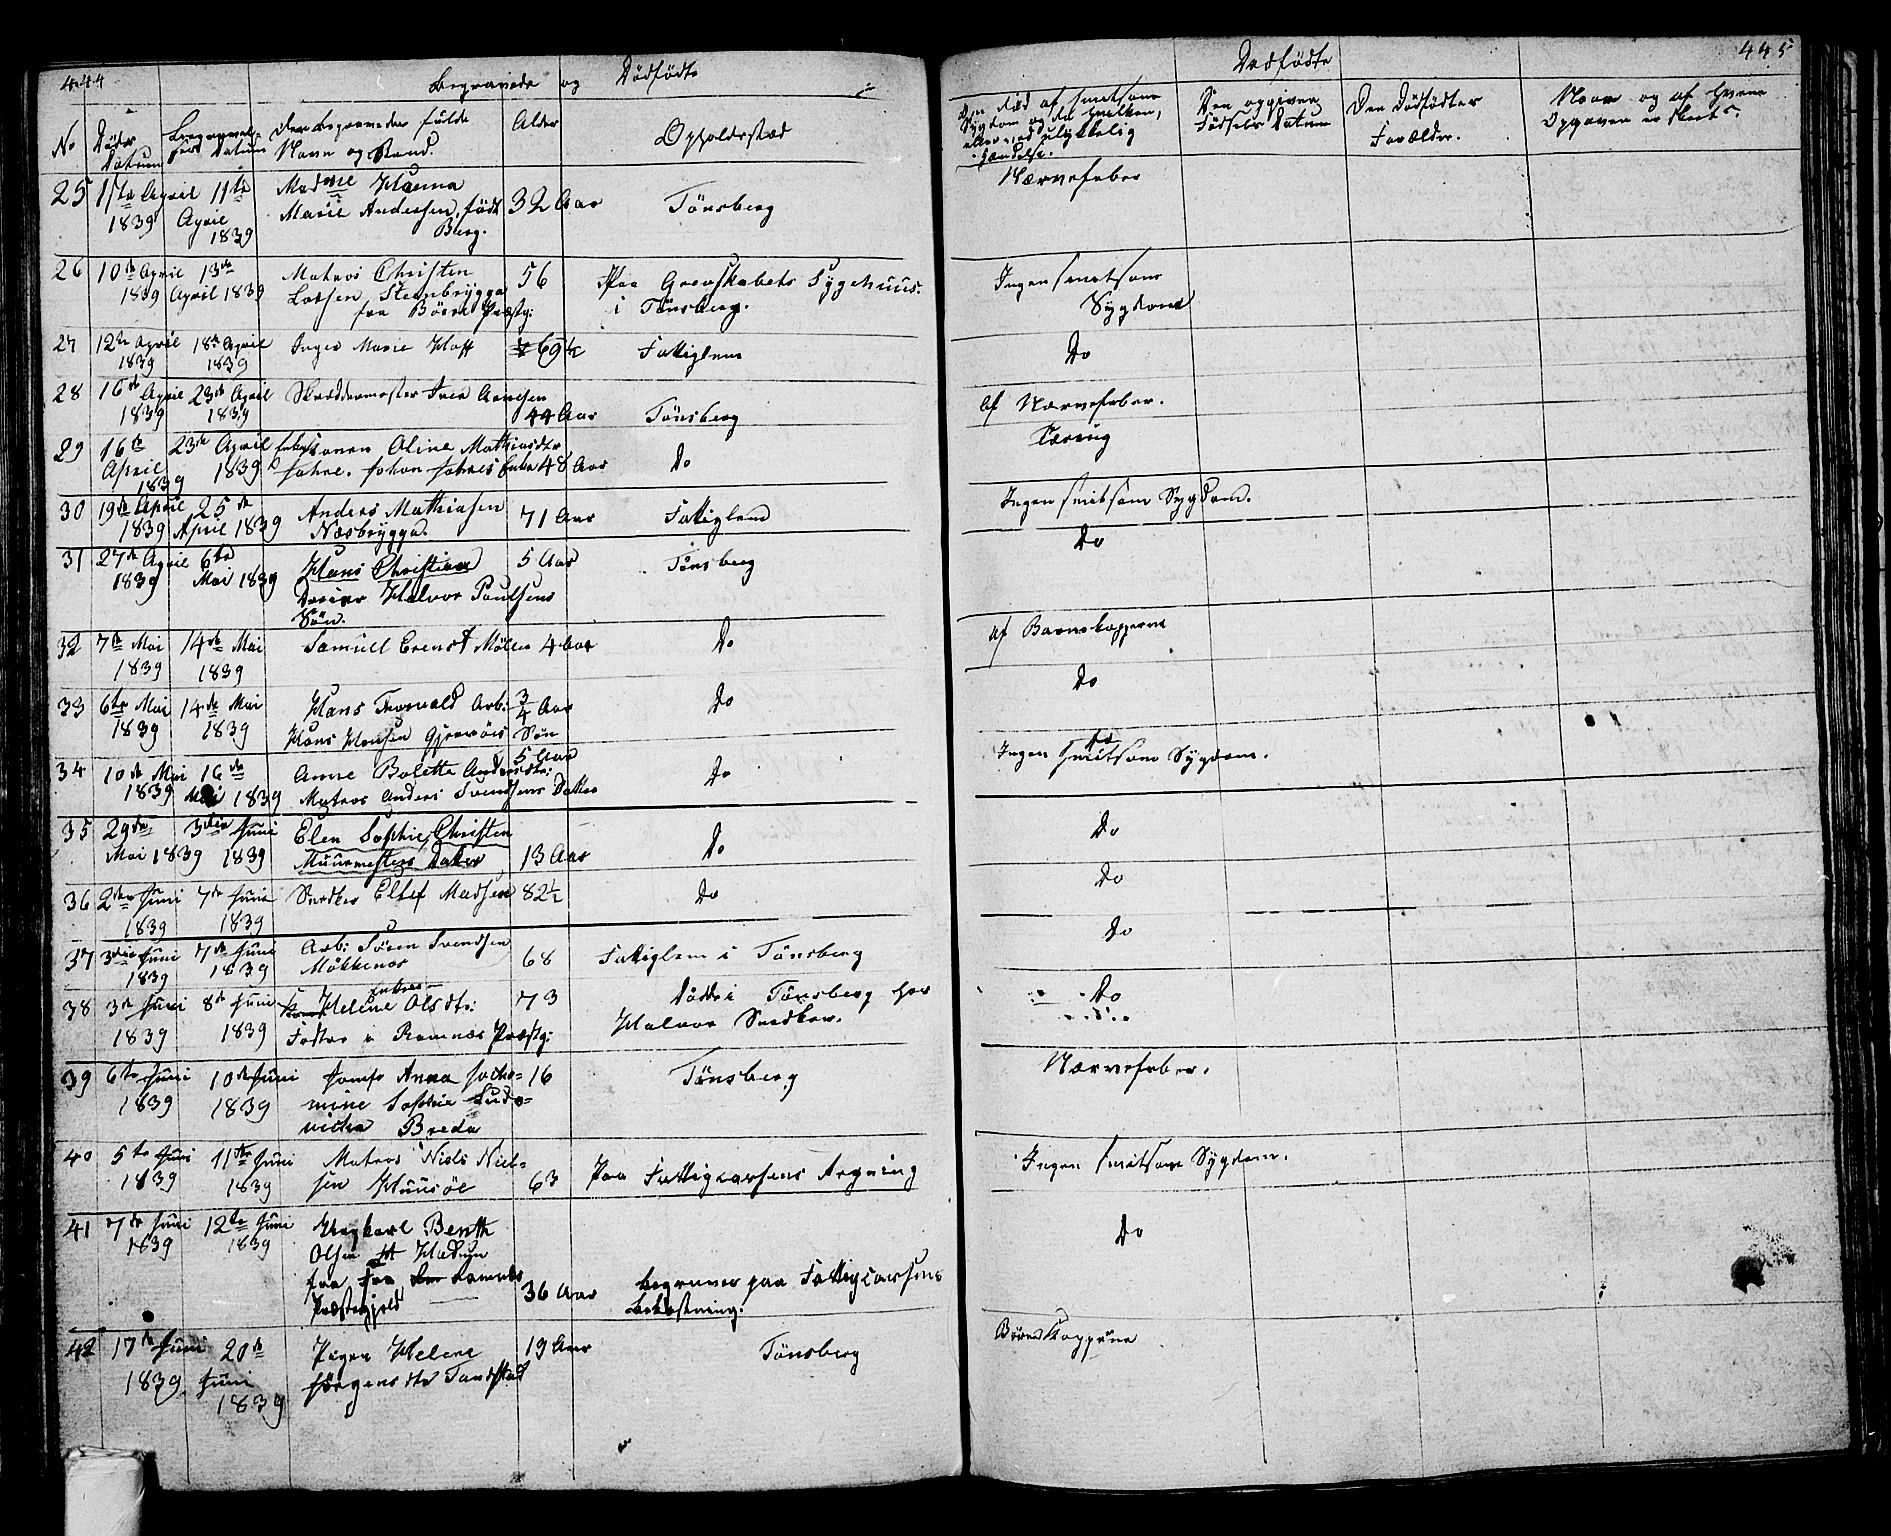 444
Begravede og Dödfödte
No
Döds Datum
Begravel- ses Datum
Den Begravedes fulde Navn og Stand.
Alder
Opholdsstæd
25 1ste April 1839 11te April 1839 Madme Hanna Marie Andersen, född Berg. 32 Aar Tönsberg
26 10de April 1839 13de April 1839 Matros Christen Larsen Steenbrygga fra Præstg: 56 Paa Grevskabets Sygehuus i Tönsberg.
27 12te April 1839 18de April 1839 Inger Marie Hoff 69½ Fattiglem
28 16de April 1839 23de April 1839 Skræddermester Iver Arnesen 44 Aar Tönsberg
29 16de April 1839 23de April 1839 Oline Mathiasdtr Johan 48 Aar Do
30 19de April 1839 25de April 1839 Anders Mathiasen Næsbrygga. 71 Aar Fattiglem
31 27de April 1839 6te Mai 1839 Hans Christian Halvor Poulsens Sön. 5 Aar Tönsberg
32 7de Mai 1839 14de Mai 1839 Samuel Ernst Möller 4 Aar Do
33 6te Mai 1839 14de Mai 1839 Hans Torvald Arb: Hans Hansen Gjervöes Sön ¾ Aar Do
34 10de Mai 1839 16de Mai 1839 Anne Bolette Andersdtr: Matros Anders Svendsens Datter 5 Aar Do
35 29de Mai 1839 3die Juni 1839 Elen Sophie, Christen Muurmesters Datter 13 Aar Do
36 2den Juni 1839 7de Juni 1839 Snedker Ellef Madsen 82½ Do
37 3die Juni 1839 7de Juni 1839 Arb: Sören Svendsen 68 Fattiglem i Tönsberg
38 3de Juni 1839 8de Juni 1839 Enke Helene Olsdtr: i Ramnæs Præstg: 73 Dödde i Tönsberg hos Halvor Snedker.
39 6te Juni 1839 10de Juni 1839 Jomfr Anna Jacho- mine Sophie Ludo- vicka Breda 16 Tönsberg
40 5te Juni 1839 11te Juni 1839 Matros Niels Niel- sen Huusöe 63 Paa Fattigcassens Regning
41 7de Juni 1839 12te Juni 1839 Benth Olsen fra Ramnæs Præstegjeld 36 Aar begraves paa Fattigcassens Bekostning.
42 17de Juni 1839 20de Juni 1839 Pigen Helene Jörgensdtr 19 Aar Tönsberg
445
Dødfödte
Om Död af smitsom Sygdom og da hvilken, eller ved ulykkelig Hændelse.
Den opgivne Födsels Datum
Den Dödfödtes Forældre.
Naar og af hvem Opgaven er skeet.
Nærvefeber
Ingen smitsom
Sygdom
Do
Af Nærvefeber.
Tæring
Ingen smitsom Sygdom.
Do
af Barnekopperne
Do
Ingen smitsom Sygdom.
Do
Do
Do
Do
Nærvefeber.
Ingen smitsom Sygdom.
Do
Börnekopperne